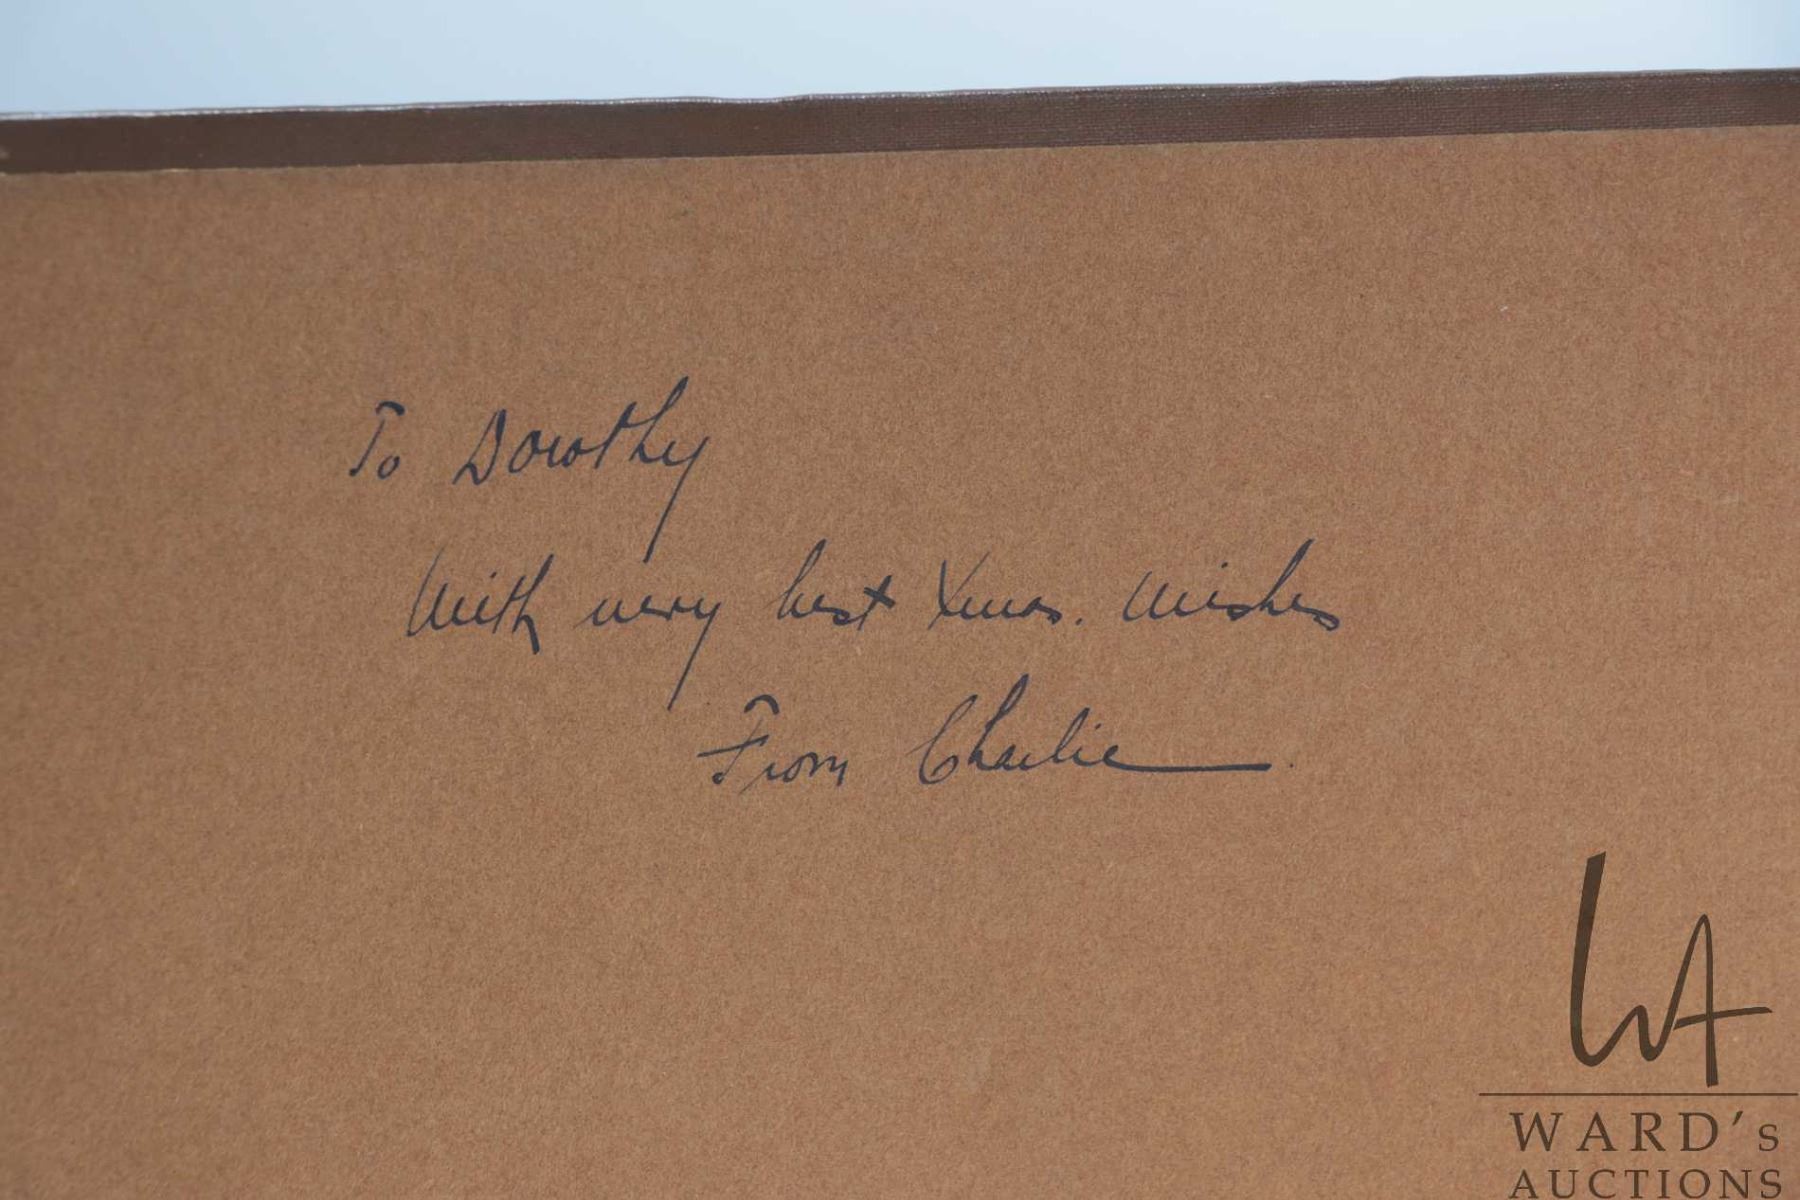 To Dorothy
With very best Xmas. Wishes
From Charlie
WA
WARD's
AUCTIONS